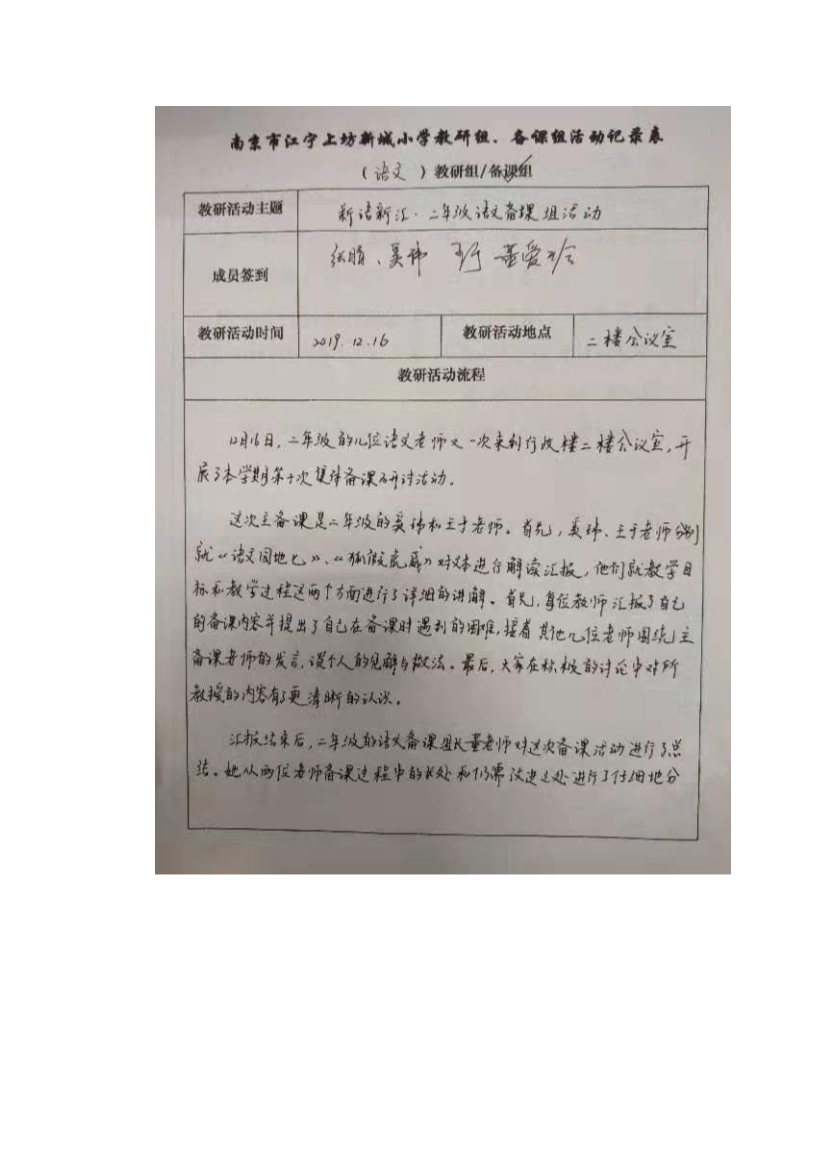 南京市江宁上坊新城小学教研组、备课组活动记录表
（ 语文 ）教研组/备课组
教研活动主题 新语新汇·二年级语文备课组活动
成员签到 张晴、吴玮 王于 董爱玲
教研活动时间 2019.12.16 教研活动地点 二楼会议室
教研活动流程
12月16日，二年级的几位语文老师又一次来到行政楼二楼会议室，开
展了本学期第十次集体备课研讨活动。
这次主备课是二年级的吴玮和王于老师。首先，吴玮、王于老师分别
就《语文园地七》、《狐假虎威》对文本进行解读汇报，他们就教学目
标和教学过程这两个方面进行了详细的讲解。首先，每位教师汇报了自己
的备课内容并提出了自己在备课时遇到的困难，接着其他几位老师围绕主
备课老师的发言，谈个人的见解与做法。最后，大家在积极的讨论中对所
教授的内容有了更清晰的认识。
汇报结束后，二年级的语文备课组长董老师对这次备课活动进行了总
结。她从两位老师备课过程中的长处和仍需改进之处进行了仔细地分